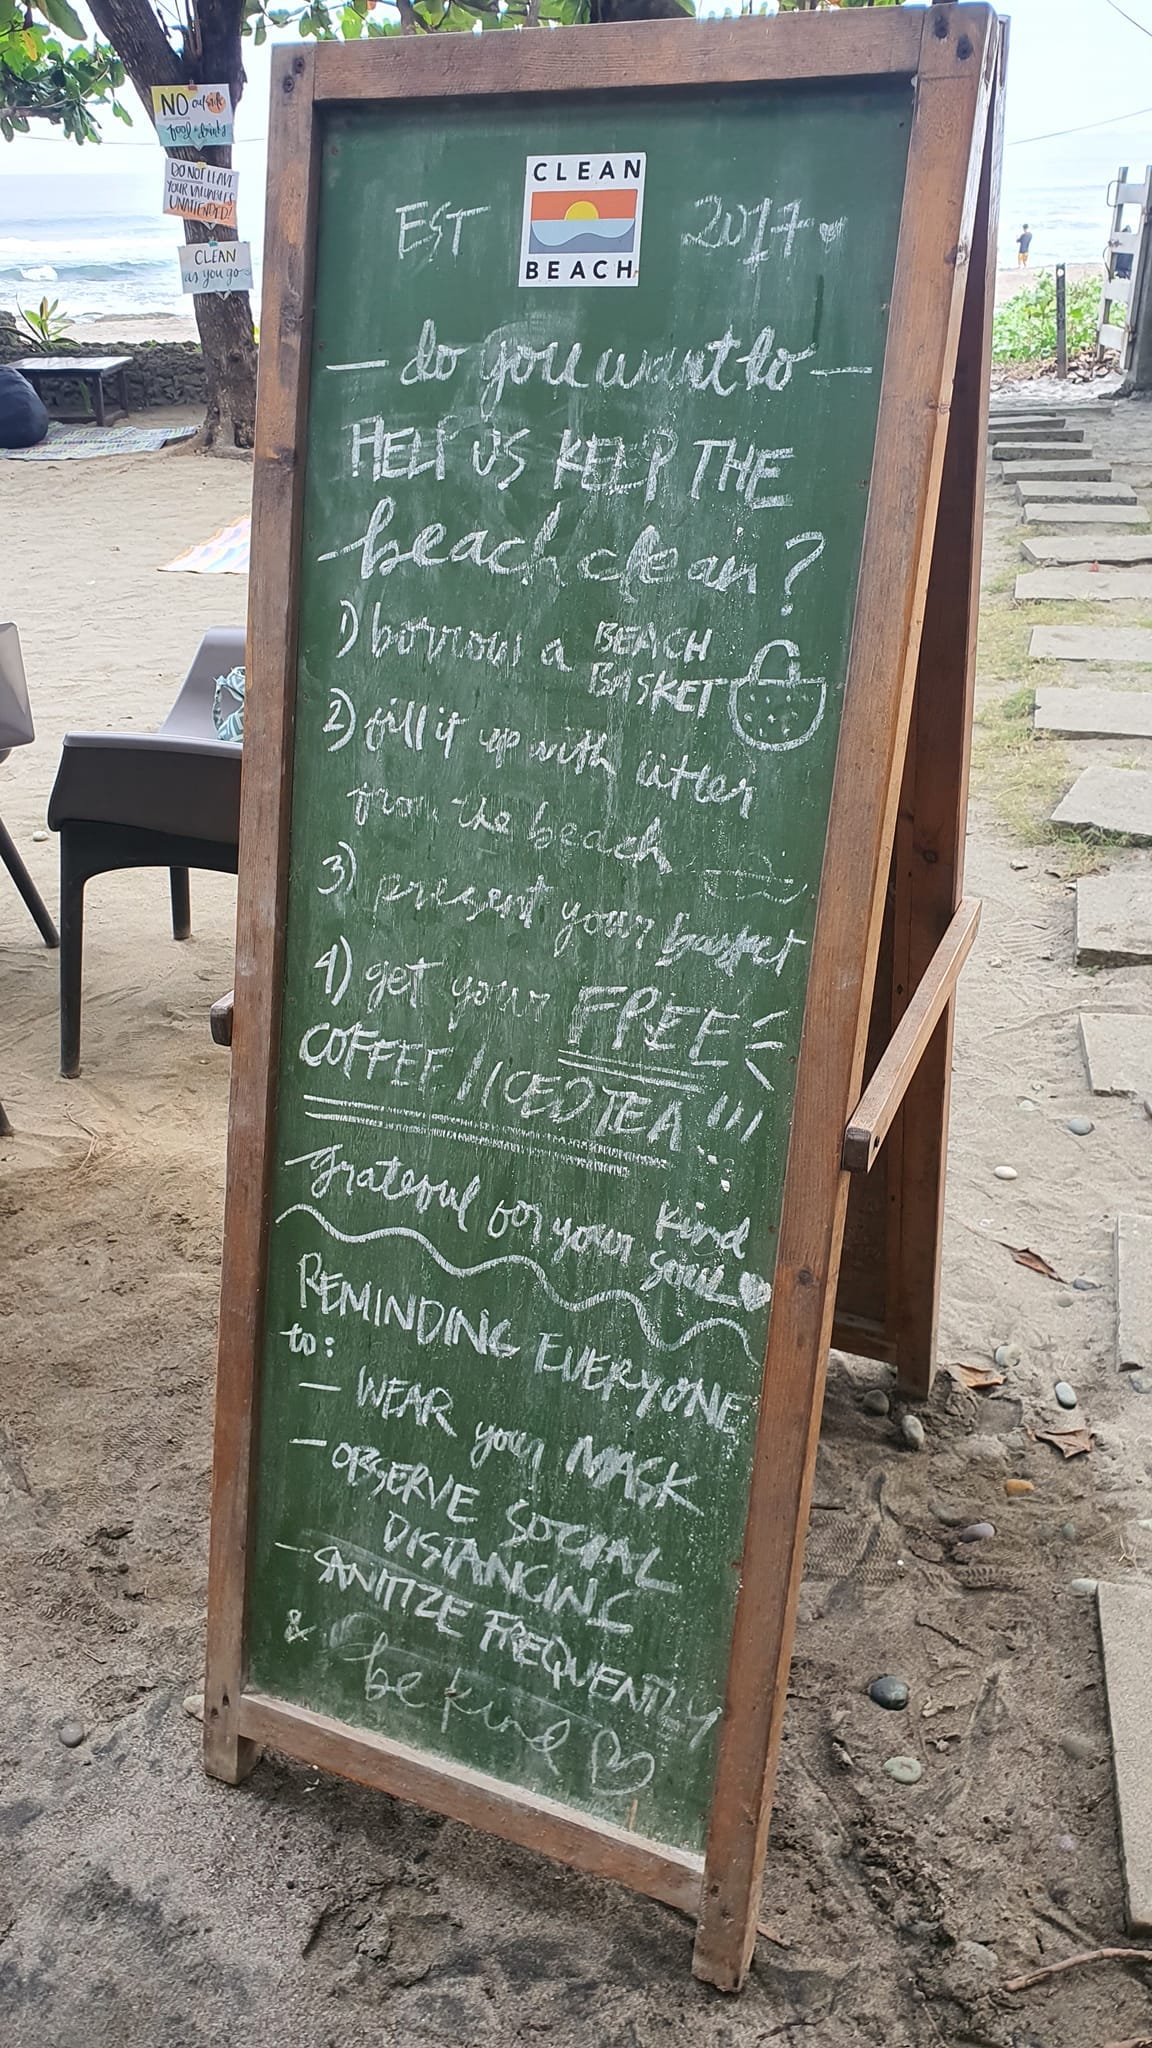 NO outside
food + drinks
DO NOT LEAVE
YOUR VALUABLES
UNATTENDED!
CLEAN
as you go
CLEAN
BEACH
EST 2017
do you want to
HELP US KEEP THE
beach clean?
1) borrow a BEACH
BASKET
2) fill it up with litter
from the beach
3) present your basket
4) get your FREE
COFFEE / ICED TEA!!!
grateful for your kind
soul
REMINDING EVERYONE
to:
- WEAR your MASK
- OBSERVE SOCIAL
DISTANCING
- SANITIZE FREQUENTLY
& be kind